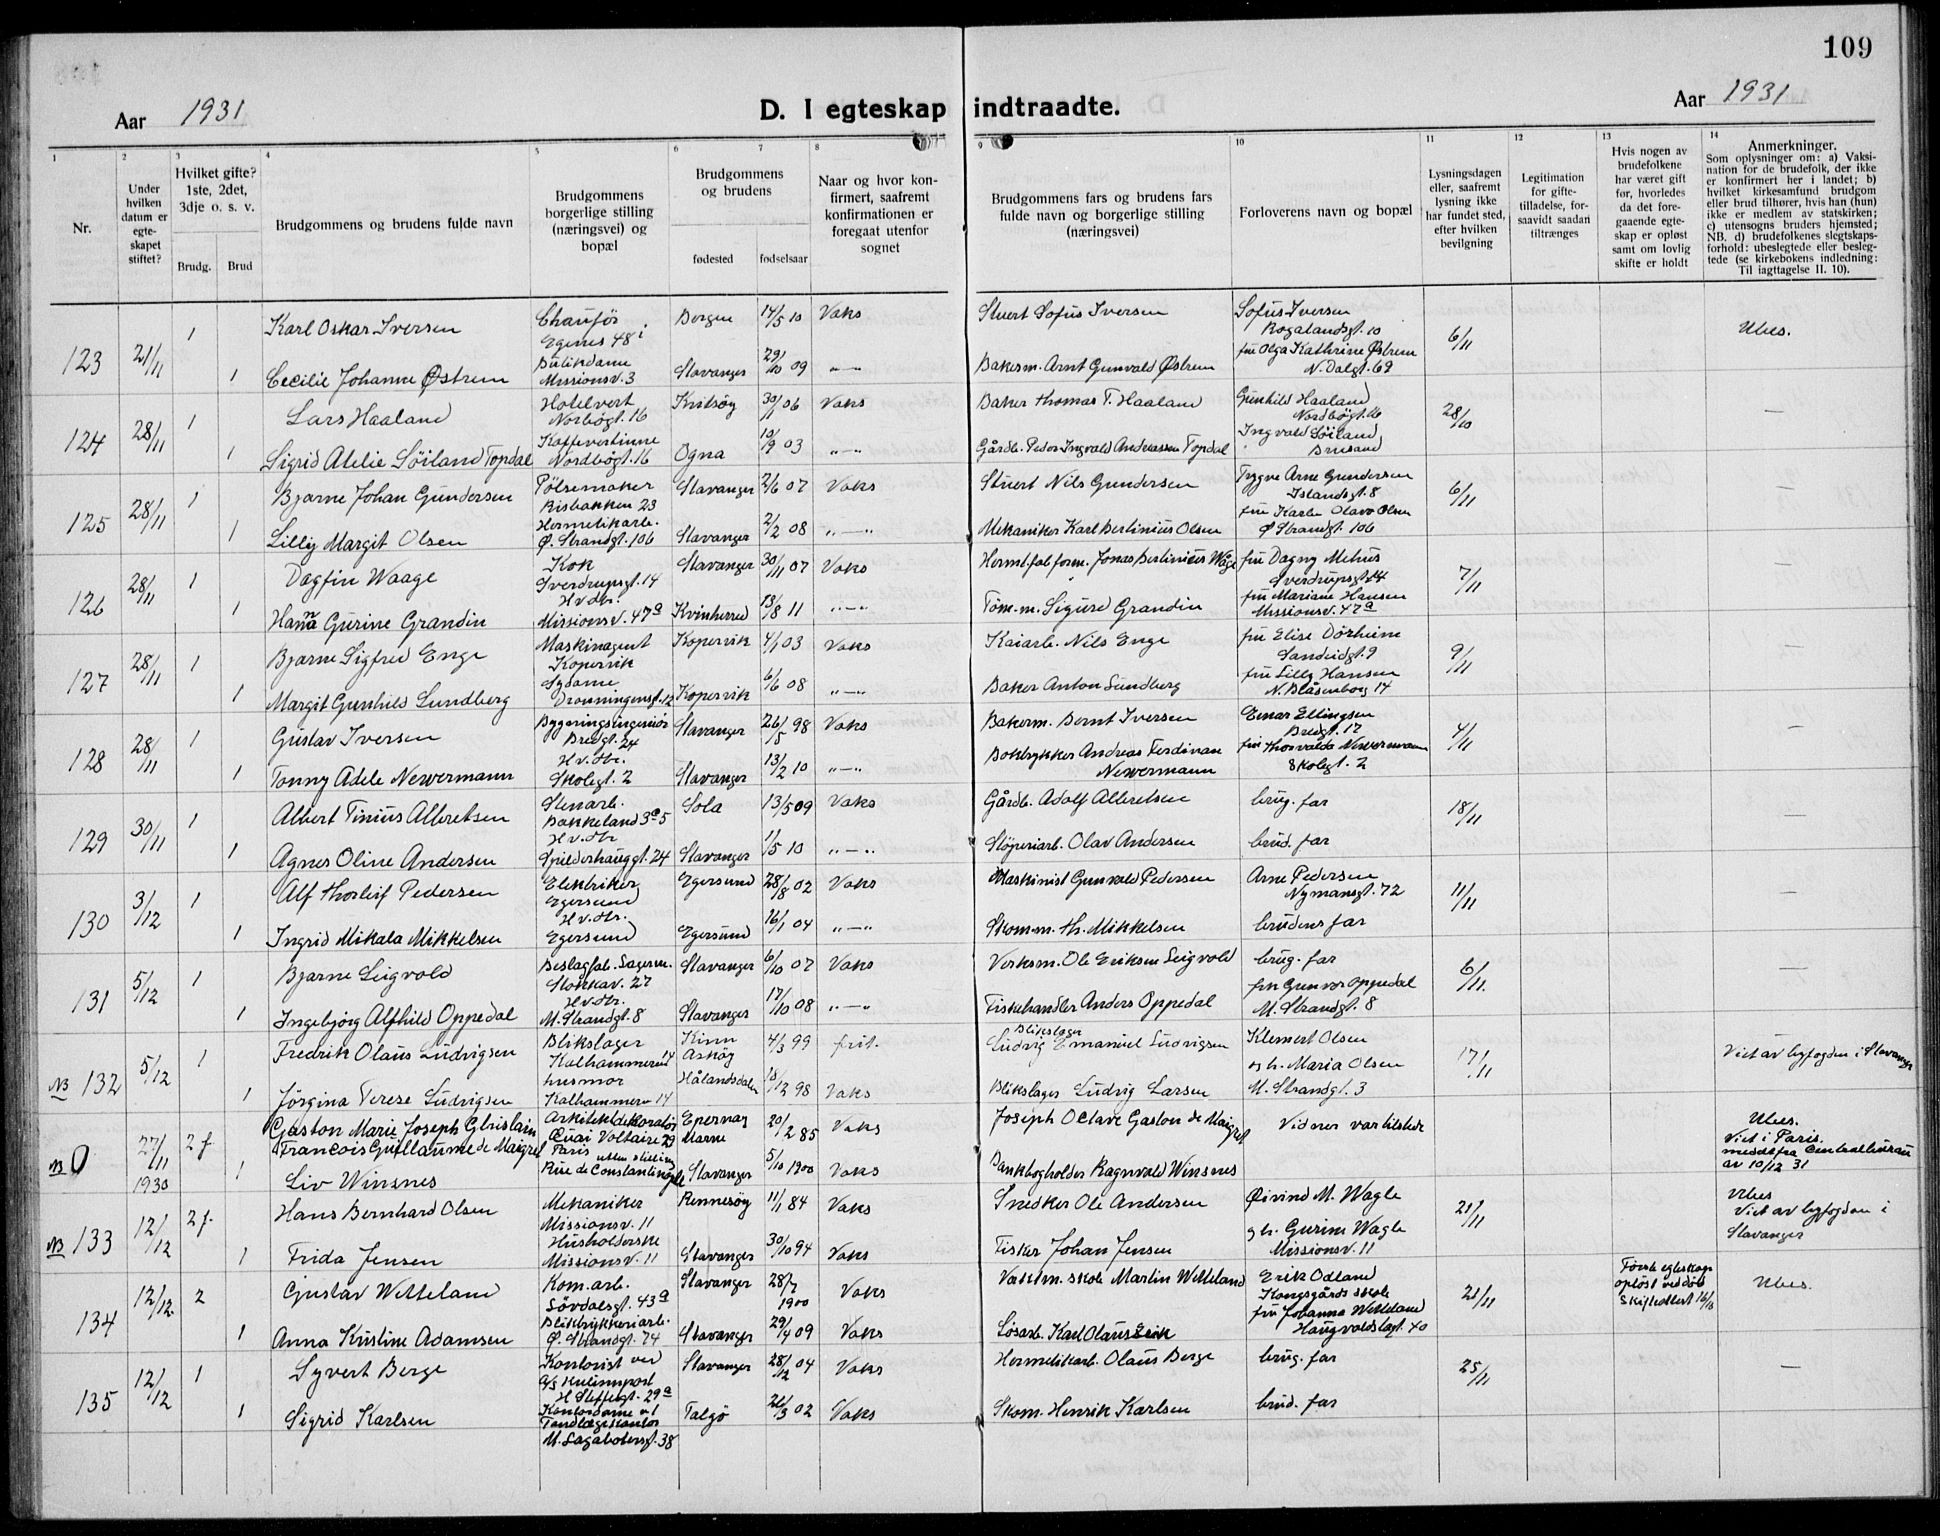 109
Aar 1931
D. I egteskap indtraadte.
Aar 1931
1
Nr.
2
Under hvilken datum er egte-skapet stiftet?
3
Hvilket gifte? 1ste, 2det, 3dje o. s. v.
Brudg. Brud
4
Brudgommens og brudens fulde navn
5
Brudgommens borgerlige stilling (næringsvei) og bopæl
6 7
Brudgommens og brudens
fødested fødselsaar
8
Naar og hvor kon-firmert, saafremt konfirmationen er foregaat utenfor sognet
9
Brudgommens fars og brudens fars fulde navn og borgerlige stilling (næringsvei)
10
Forloverens navn og bopæl
11
Lysningsdagen eller, saafremt lysning ikke har fundet sted, efter hvilken bevilgning
12
Legitimation for gifte-tilladelse, for-saavidt saadan tiltrænges
13
Hvis nogen av brudefolkene har været gift før, hvorledes da det fore-gaaende egte-skap er opløst samt om lovlig skifte er holdt
14
Anmerkninger.
Som oplysninger om: a) Vaksi-nation for de brudefolk, der ikke er konfirmert her i landet; b) hvilket kirkesamfund brudgom eller brud tilhører, hvis han (hun) ikke er medlem av statskirken; c) utensogns bruders hjemsted; NB. d) brudefolkenes slegtskaps-forhold: ubeslegtede eller besleg-tede (se kirkebokens indledning: Til iagttagelse II. 10).
123 21/11 1 Karl Oskar Iversen Chaufför Egenes 48 i Bergen 14/5 10 Vaks Stuert Sofus Iversen Sofus Iversen Rogalandsgt. 10 6/11 Ubes.
1 Cecilie Johanne Østrem Butikdame Missionsv. 3 Stavanger 29/10 09 "—" Bakerm. Arnt Gunvald Østrem fru Olga Kathrine Østrem N. Dalgt. 69
124 28/11 1 Lars Haaland Hotelvert Norbøgt. 16 Kvitsøy 30/11 06 Vaks Baker Thomas T. Haaland Gunhild Haaland Nordbøgt. 16 28/10 —
1 Sigrid Atelie Söiland Topdal Kaffevertinne Nordbøgt. 16 Ogna 10/9 03 "—" Gårdb. Peder Ingvald Andreassen Topdal Ingvald Söiland Brusand
125 28/11 1 Bjarne Johan Gundersen Pölsemaker Risbakken 23 Stavanger 2/6 07 Vaks Stuert Nils Gundersen Trygve Arne Gundersen Islandsgt. 8 6/11 —
1 Lilly Margit Olsen Hermetikarb. Ø. Strandgt. 106 Stavanger 2/2 08 "—" Mekaniker Karl Bertinius Olsen fru Karla Olava Olsen Ø Strandgt. 106
126 28/11 1 Dagfin Waage Kok Sverdrupsgt. 14 Stavanger 30/11 07 Vaks Hermt.fab.form. Jonas Bertinius Wåge fru Dagny Mehus Sverdrupsgt. 14 7/11 —
1 Hanna Gurine Grandin H v. dtr. Missionsv. 47a Kvinherred 13/8 11 "—" Töm.m. Sigurd Grandin fru Mariane Hansen Missionsv. 47a
127 28/11 1 Bjarne Sigfred Enge Maskinagent Kopervik Kopervik 4/1 03 Vaks Kaiarb. Nils Enge fru Elise Dörheim Sandeidgt. 9 9/11 —
1 Margit Gunhild Lundberg Sydame Dronningensgt. 12 Kopervik 6/6 08 "—" Baker Anton Lundberg fru Lilly Hansen N. Blåsenborg 14
128 28/11 1 Gustav Iversen Bygningsingeniör Bredgt. 24 Stavanger 26/5 98 Vaks Bakerm. Bernt Iversen Einar Ellingsen Bredgt. 17 4/11 —
1 Tonny Adele Newermann H v. dtr. Skolegt. 2 Stavanger 13/2 10 "—" Boktrykker Andreas Ferdinan Newermann fru Thorvalda Newermann Skolegt. 2
129 30/11 1 Albert Tinius Albretsen Stenarb. Bakkeland 3a5 Sola 13/5 09 Vaks Gårdb. Adolf Albretsen brug. far 18/11 —
1 Agnes Oline Andersen H v. dtr Spilderhauggt. 24 Stavanger 11/5 10 "—" Stöperiarb. Olav Andersen brud. far
130 3/12 1 Alf Thorleif Pedersen Elektriker Egersund Egersund 28/8 02 Vaks Maskinist Gunvald Pedersen Arne Pedersen Nymansgt. 72 11/11 —
1 Ingrid Mikala Mikkelsen H v. dtr. Egersund Egersund 16/1 04 "—" Skom.m. Th. Mikkelsen brudens far
131 5/12 1 Bjarne Seigvold Beslagfab. Lagerm. Stokkav. 27 Stavanger 6/10 07 Vaks Verksm. Ole Eriksen Seigvold brug. far 6/11. —
1 Ingebjørg Alfhild Oppedal H v. dtr. M. Strandgt. 8 Stavanger 17/10 08 "—" Fiskehandler Anders Oppedal fru Gunvor Oppedal M. Strandgt. 8
NB 132 5/12 1 Fredrik Olaus Ludvigsen Blikslager Kalhammeren 14 Kinn Askøy 4/3 99 frit. Blikslager Ludvig Emanuel Ludvigsen Klement Olsen 17/11 Viet av byfogden i Stavanger
1 Jörgina Terese Ludvigsen husmor Kalhammeren 14 Hålandsdalen 18/12 98 Vaks Blikslager Ludvig Larsen og h. Maria Olsen M. Strandgt. 3
NB 0 27/11 1930 2 f. Gaston Marie Joseph Ghislain Francois Guillaume de Maigret Arkitektdekoratör Quai Voltaire 29 Paris Epernay Marne 20/2 85 Vaks Joseph Octave Gaston de Maigret Vidner var tilstede Ubes. Viet i Paris. meddt. fra Centralbureau av 10/12 31
1 Liv Winsnes uten stilling Rue de Constantinople Stavanger 5/10 1900 Vaks Bankbogholder Ragnvald Winsnes
NB 133 12/12 2 f. Hans Bernhard Olsen Mekaniker Missionsv. 11 Rennesøy 11/1 84 Vaks Snedker Ole Andersen Øivind M. Wagle 21/11 Ubes Viet av byfogden i Stavanger
1 Frida Jensen Husholderske Missionsv. 11 Stavanger 30/10 94 Vaks Fisker Johan Jensen og h. Gurine Wagle Missionsv. 11
134 12/12 2 Gustav Wetteland Kom. arb. Lövdalsgt. 43a Stavanger 28/7 1900 Vaks Vaktm. skole Martin Wetteland Erik Odland Kongsgårds skole 21/11 Förste egteskap opløst ved död Skifte holdt 16/10 Ubes.
1 Anna Kristine Adamsen Bliktrykkeriarb. Ø. Strandgt. 74 Stavanger 29/4 09 Vaks Lösarb. Karl Olaus Erik fru Johanna Wetteland Haugvaldstgt. 40
135 12/12 1 Syvert Berge Kontorist ved A/S H Steffegt. 29a Stavanger 28/12 04 Vaks Hermetikarb. Olaus Berge brug. far 25/11 —
1 Sigrid Karlsen Kontordame v/ Tandlægekontor M. Sagabotensgt. 38 Talgö 26/3 02 Vaks Skom. Henrik Karlsen brud. far